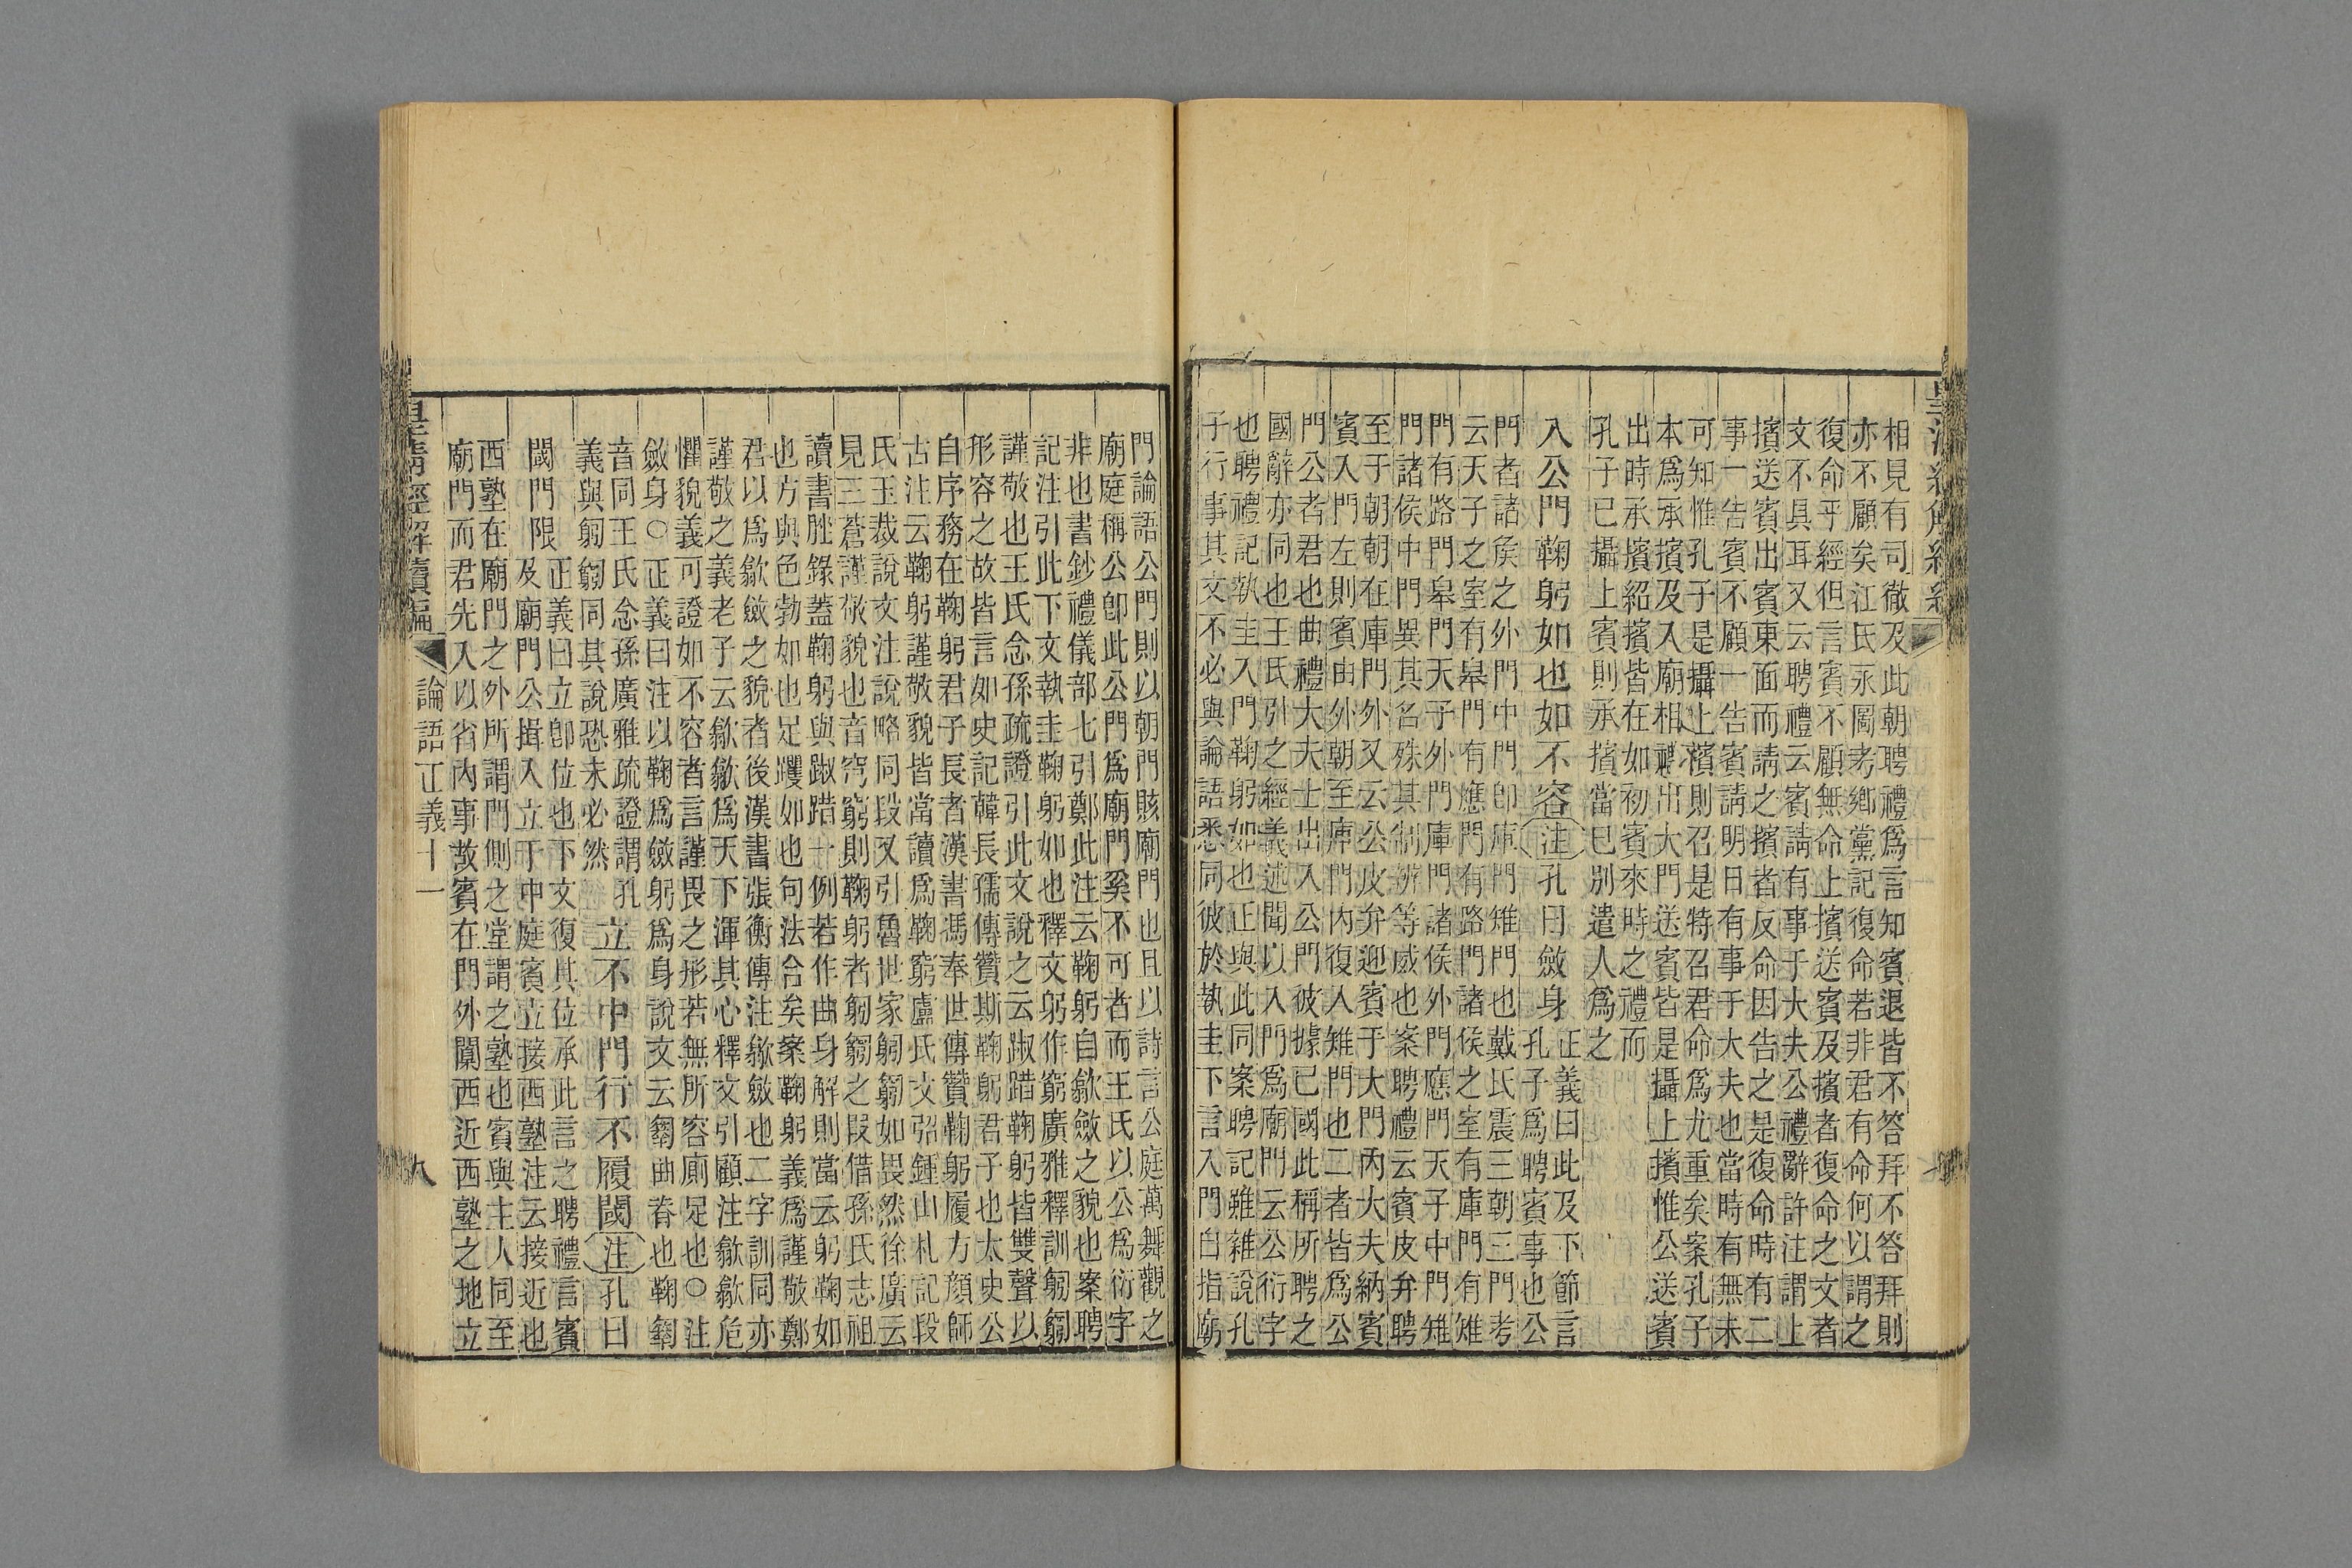 相見有司徹及此朝聘禮爲言知賓退皆不答拜不答拜則
亦不顧矣江氏永圖考鄉黨記復命若非君有命何以謂之
復命乎經但言賓不顧無命上擯送賓及擯者復命之文者
文不具耳又云聘禮云賓請有事于大夫公禮辭許注謂上
擯送賓出賓東面而請之擯者反命因告之是復命時有二
事一告賓不顧一告賓請明日有事于大夫也當時有無未
可知惟孔子是攝上擯則召是特召君命爲尤重矣案孔子
本爲承擯及入廟相禮出大門送賓皆是攝上擯惟公送賓
出時承擯紹擯皆在如初賓來時之禮而
孔子已攝上賓則承擯當已別遣人爲之
入公門鞠身如也如不容注孔曰斂身
正義曰此及下節言
孔子爲聘賓事也公
門者諸侯之外門中門卽庫門雉門也戴氏震三朝三門考
云天子之室有皋門有應門有路門諸侯之室有庫門有雉
門有路門皋門天子外門庫門諸侯外門應門天子中門雉
門諸侯中門異其名殊其制辨等威也案聘禮云賓皮弁聘
至于朝朝在庫門外又云公皮弁迎賓于大門內大夫納賓
賓入門左則賓由外朝至庫門內復入雉門也二者皆爲公
門公者君也曲禮大夫士出入公門彼據己國此稱所聘之
國辭亦同也王氏引之經義述聞以入門爲廟門云公衍字
也聘禮記執圭入門鞠躬如也正與此同案聘記雖雜說孔
子行事其文不必與論語悉同彼於執圭下言入門自指廟
門論語公門則以朝門賅廟門也且以詩言公庭萬舞觀之
廟庭稱公卽此公門爲廟門奚不可者而王氏以公爲衍字
非也書鈔禮儀部七引鄭此注云鞠躬自歛斂之貌也案聘
記注引此下文執圭鞠躬如也釋文躬作窮廣雅釋訓匑匑
謹敬也王氏念孫疏證引此文說之云踧踖鞠躬皆雙聲以
形容之故皆言如史記韓長孺傳贊斯鞠躬君子也太史公
自序務在鞠躬君子長者漢書馮奉世傳贊鞠躬履方顏師
古注云鞠躬謹敬貌皆當讀爲鞠窮盧氏文弨鍾山札記段
氏玉裁說文注說略同段又引魯世家匑匑如畏然徐廣云
見三蒼謹敬貌也音穹窮則鞠躬者匑匑之叚借孫氏志祖
讀書脞錄蓋鞠躬與踧踖一例若作曲身解則當云躬鞠如
也方與色勃如也足躩如也句法合矣案鞠躬義爲謹敬鄭
君以爲歛斂之貌者後漢書張衡傳注歛斂也二字訓同亦
謹敬之義老子云歛歛爲天下渾其心釋文引顧注歛歛危
懼貌義可證如不容者言謹畏之形若無所容廁足也○注
斂身○正義曰注以鞠爲斂躬爲身說文云匑曲脊也鞠匑
音同王氏念孫廣雅疏證謂孔
義與匑匑同其說恐未必然
立不中門行不履閾注孔曰
閾門限
正義曰立卽位也下文復其位承此言之聘禮言賓
及廟門公揖入立于中庭賓立接西塾注云接近也
西塾在廟門之外所謂門側之堂謂之塾也賓與主人同至
廟門而君先入以省內事故賓在門外闑西近西塾之地立
皇清經解續編
論語正義十一
九